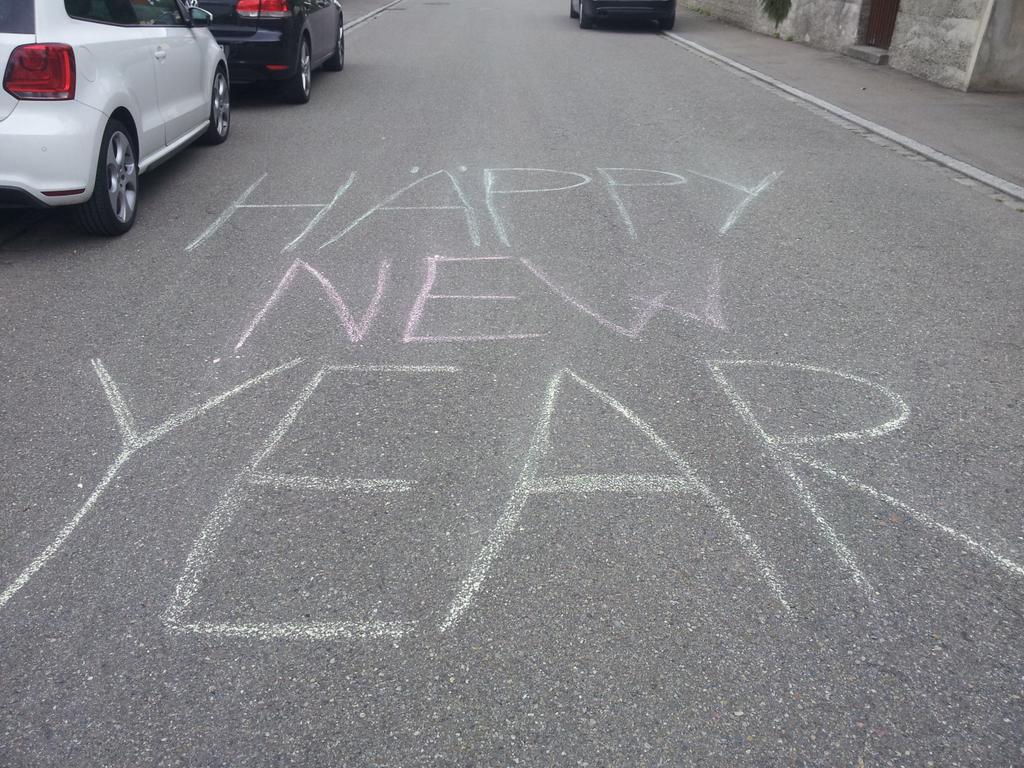 HÄPPY
NEW
YEAR